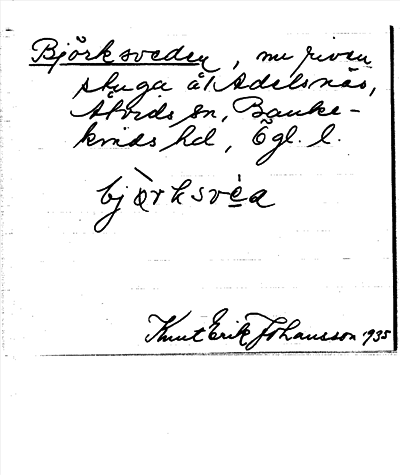 Björksveden, nu riven
stuga å Adelsnäs,
Åtvids sn, Banke-
kinds hd, Ögl. l.
bjòrksvèa
Knut Erik Johansson 1935